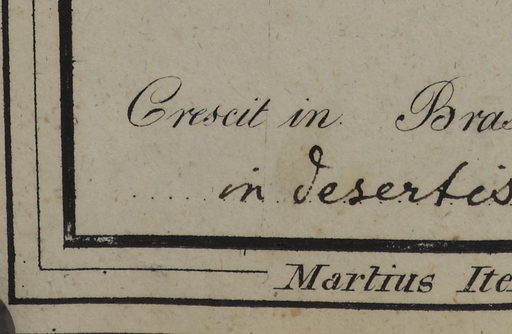 Crescit in Bras
in desertis
Martius Ite